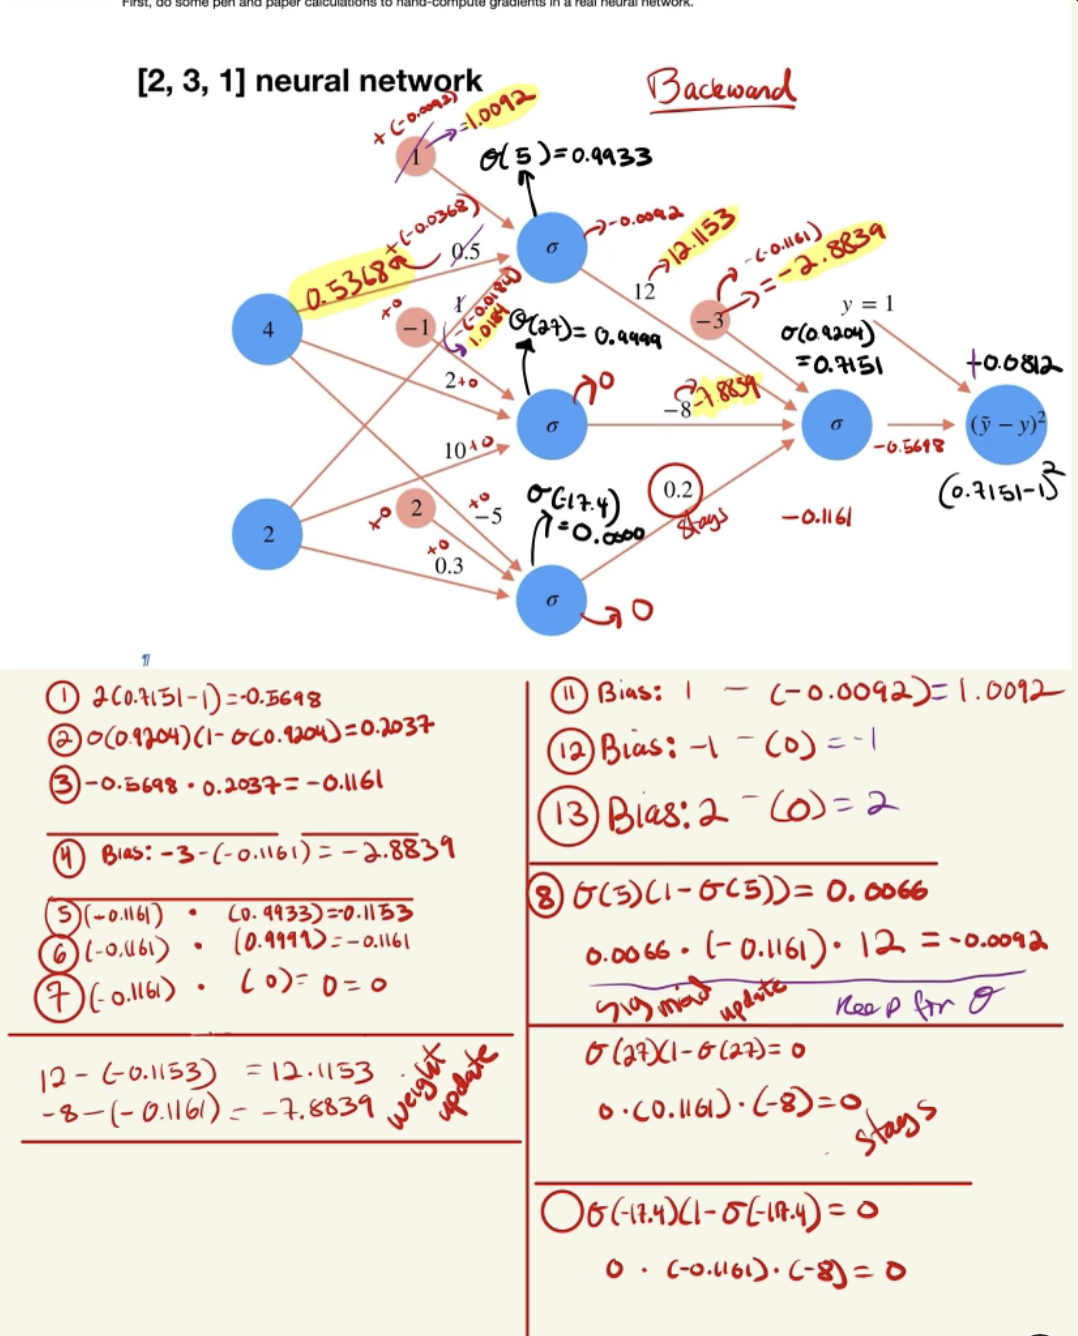 First, do some pen and paper calculations to hand-compute gradients in a real neural network.
[2, 3, 1] neural network
Backward
+(-0.0092)
=1.0092
1
σ(5)=0.9933
+(-0.0368)
0.5
0.5368
→-0.0092
12.1153
12
-(-0.1161)
=-2.8839
-3
y = 1
4
+0
-1
1
-(-0.0184)
1.0184
σ(27)=0.9999
σ
σ(0.9204)
=0.7151
+0.0812
2+0
0
-8
-7.8839
σ
σ
(ỹ − y)²
-0.5698
(0.7151-1)²
10+0
2
+0
2
+0
-5
σ(-17.4)
=0.0000
0.2
stays
-0.1161
+0
0.3
σ
0
¶
① 2(0.7151-1)=-0.5698
② σ(0.9204)(1-σ(0.9204)=0.2037
③ -0.5698 · 0.2037=-0.1161
④ Bias: -3-(-0.1161) = -2.8839
⑤ (-0.1161) · (0.9933)=-0.1153
⑥ (-0.1161) · (0.9999)=-0.1161
⑦ (-0.1161) · (0)= 0 = 0
12 - (-0.1153) = 12.1153
-8-(-0.1161) = -7.8839
weight update
⑪ Bias: 1 - (-0.0092)=1.0092
⑫ Bias: -1 - (0) = -1
⑬ Bias: 2 - (0) = 2
⑧ σ(5)(1-σ(5))= 0.0066
0.0066 · (-0.1161) · 12 = -0.0092
sigmoid update
Keep for σ
σ(27)(1-σ(27)= 0
0·(0.1161)·(-8)=0
stays
σ(-17.4)(1-σ(-17.4)= 0
0 · (-0.1161)·(-8)= 0